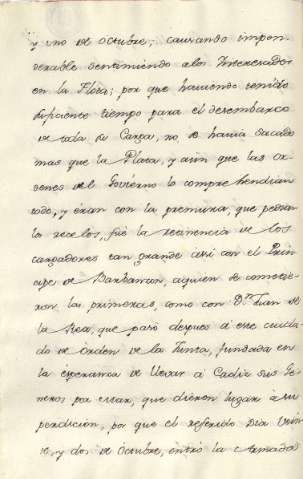 y uno de octubre; causando impon
derable sentimiento a los Interesados
en la Flota; por que haviendo tenido
suficiente tiempo para el desembarco
de toda su Carga, no se havia sacado
mas que la Plata, y aun que las or
denes del Govierno lo comprehendian
todo, y eran con la premura, que pedian
los recelos, fué la renitencia de los
cargadores tan grande assi con el Prin
cipe de Barbanzon, aquien se cometie
ron las primeras, como con Dn. Juan de
la Rea, que pasó despues a este cuida
do de orden de la Junta, fundada en
la esperanza de llevar a Cadiz sus Ge
neros por creer, que dieron lugar á su
perdicion, por que el referido Dia Vein
te, y dos de octubre, entró la Armada